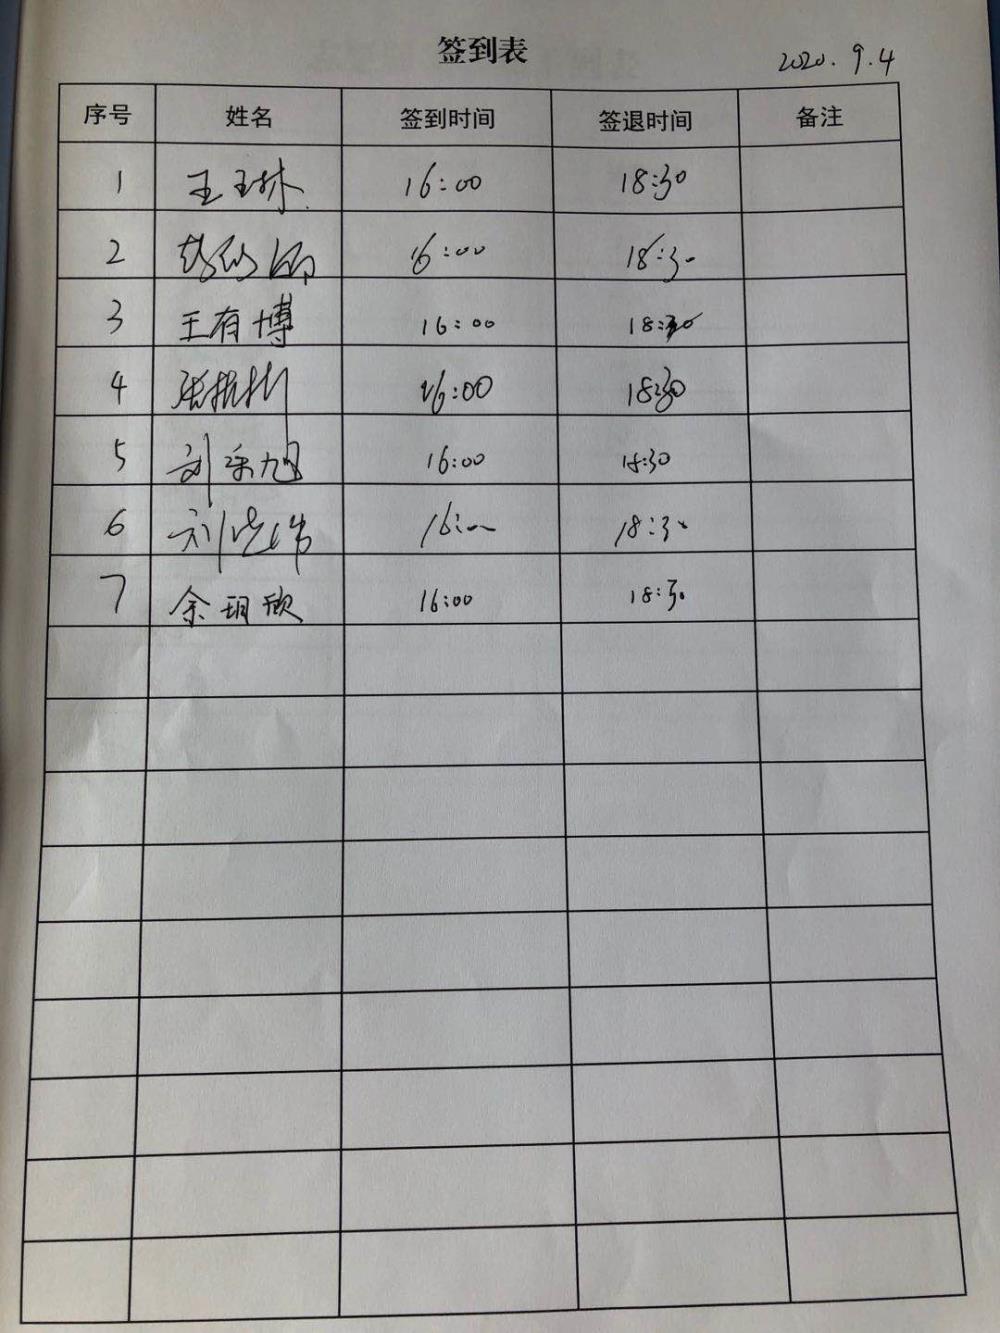 签到表
2020.9.4
序号 姓名 签到时间 签退时间 备注
1 王玉林 16:00 18:30
2 16:00 18:30
3 王有博 16:00 18:30
4 张 16:00 18:30
5 刘 旭 16:00 18:30
6 刘 伟 16:00 18:30
7 余玥欣 16:00 18:30